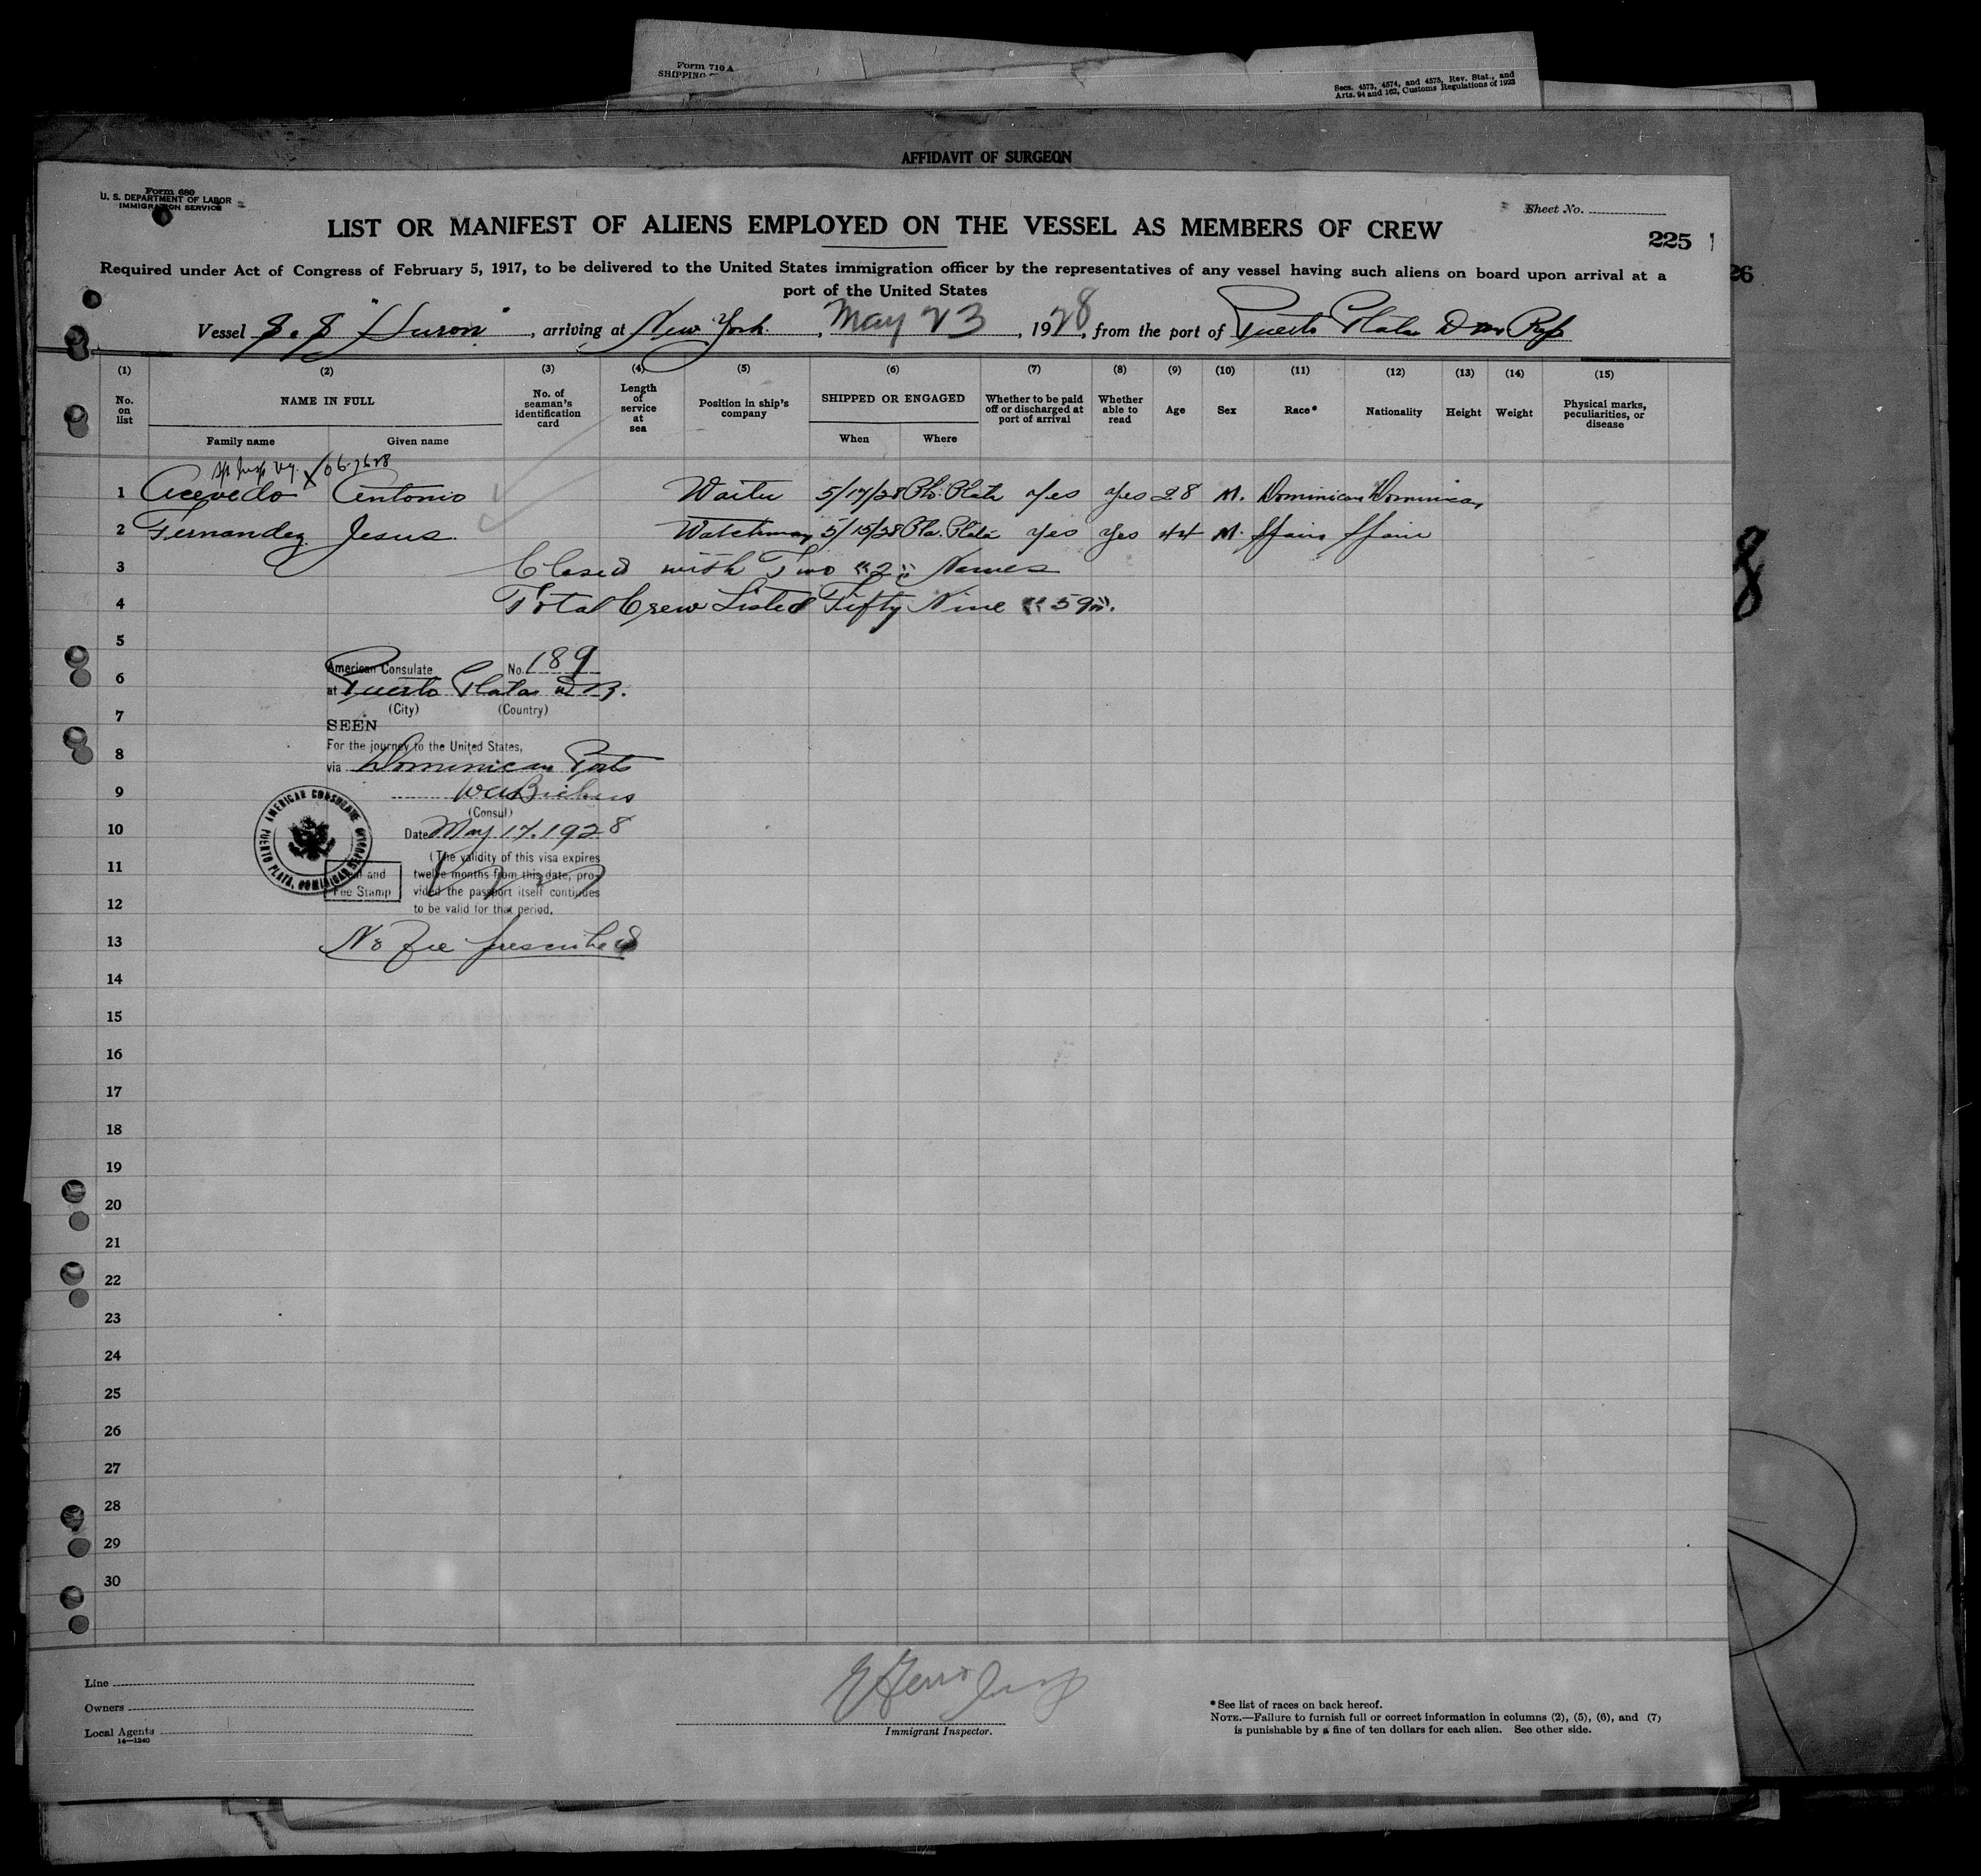 Form 710 A
SHIPPING
Secs. 4573, 4574, and 4575, Rev. Stat., and
Arts. 94 and 162, Customs Regulations of 1923
AFFIDAVIT OF SURGEON
Form 680
U. S. DEPARTMENT OF LABOR
IMMIGRATION SERVICE
Sheet No.
LIST OR MANIFEST OF ALIENS EMPLOYED ON THE VESSEL AS MEMBERS OF CREW
225
26
Required under Act of Congress of February 5, 1917, to be delivered to the United States immigration officer by the representatives of any vessel having such aliens on board upon arrival at a
port of the United States
Vessel S.S "Huron", arriving at New York, May 23, 1928, from the port of Puerto Plata Dom Rep
(1) (2) (3) (4) (5) (6) (7) (8) (9) (10) (11) (12) (13) (14) (15)
No. on list NAME IN FULL Family name Given name No. of seaman's identification card Length of service at sea Position in ship's company SHIPPED OR ENGAGED When Where Whether to be paid off or discharged at port of arrival Whether able to read Age Sex Race* Nationality Height Weight Physical marks, peculiarities, or disease
1 Acevedo Antonio Waiter 5/17/28 Pto. Plata Yes Yes 28 M. Dominican Dominican
2 Fernandez Jesus. Watchman 5/15/28 Pto. Plata Yes Yes 44 M. Spain Spain
3 Closed with Two "2" Names
4 Total Crew Listed Fifty Nine "59".
5
American Consulate No. 189
6
at Puerto Plata D R.
(City) (Country)
7
SEEN
For the journey to the United States,
8
via Dominican Ports
9
W A Bickers
(Consul)
10
Date May 17. 1928
AMERICAN CONSULATE PUERTO PLATA, DOMINICAN REPUBLIC
(The validity of this visa expires
11
twelve months from this date, pro-
and
Fee Stamp
vided the passport itself continues
12
to be valid for that period.
13
No fee prescribed
14
15
16
17
18
19
20
21
22
23
24
25
26
27
28
29
30
Line
Owners
Local Agents
14—1240
Immigrant Inspector.
* See list of races on back hereof.
NOTE.—Failure to furnish full or correct information in columns (2), (5), (6), and (7)
is punishable by a fine of ten dollars for each alien. See other side.